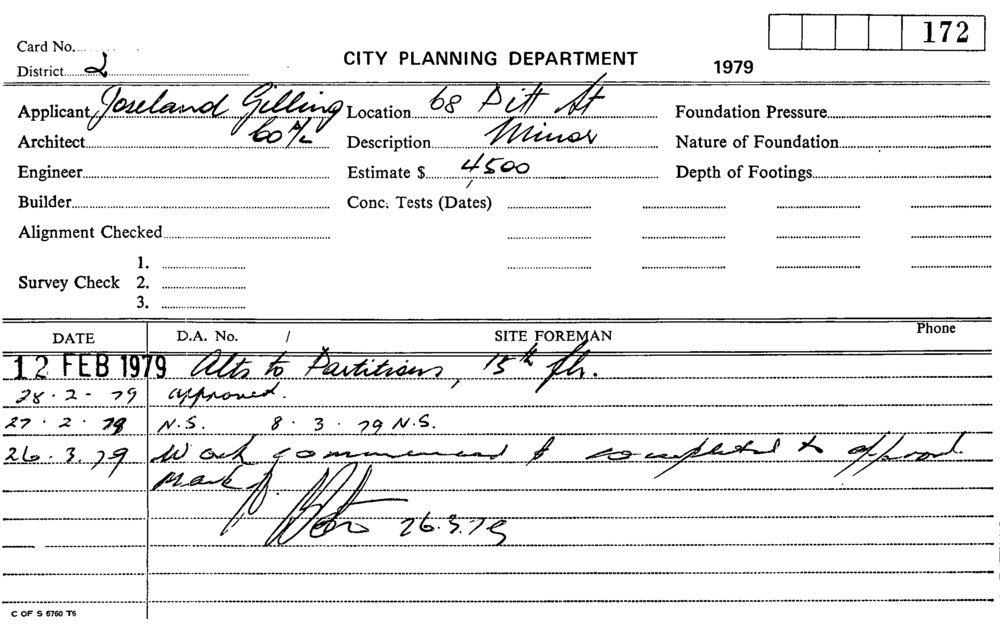 172
Card No.
CITY PLANNING DEPARTMENT 1979
District 2
Applicant Joseland Gilling Location 68 Pitt St Foundation Pressure
Architect 60 A/L Description Minor Nature of Foundation
Engineer Estimate $ 4500 Depth of Footings
Builder Conc. Tests (Dates)
Alignment Checked
1.
Survey Check 2.
3.
DATE D.A. No. / SITE FOREMAN Phone
12 FEB 1979 Alts to Partitions, 15th flr.
28.2-79 approved.
27.2.79 N.S. 8.3.79 N.S.
26.3.79 Work commenced & completed to approval.
Mark
26.3.79
C OF S 6760 T6